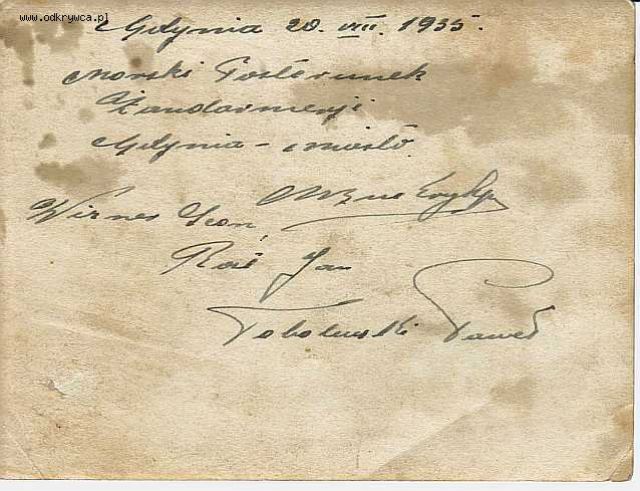 www.odkrywca.pl
Gdynia 20. VIII. 1935.
Morski Posterunek
Żandarmerji
Gdynia - miasto.
Wirnes Leon,
Jan
Paweł